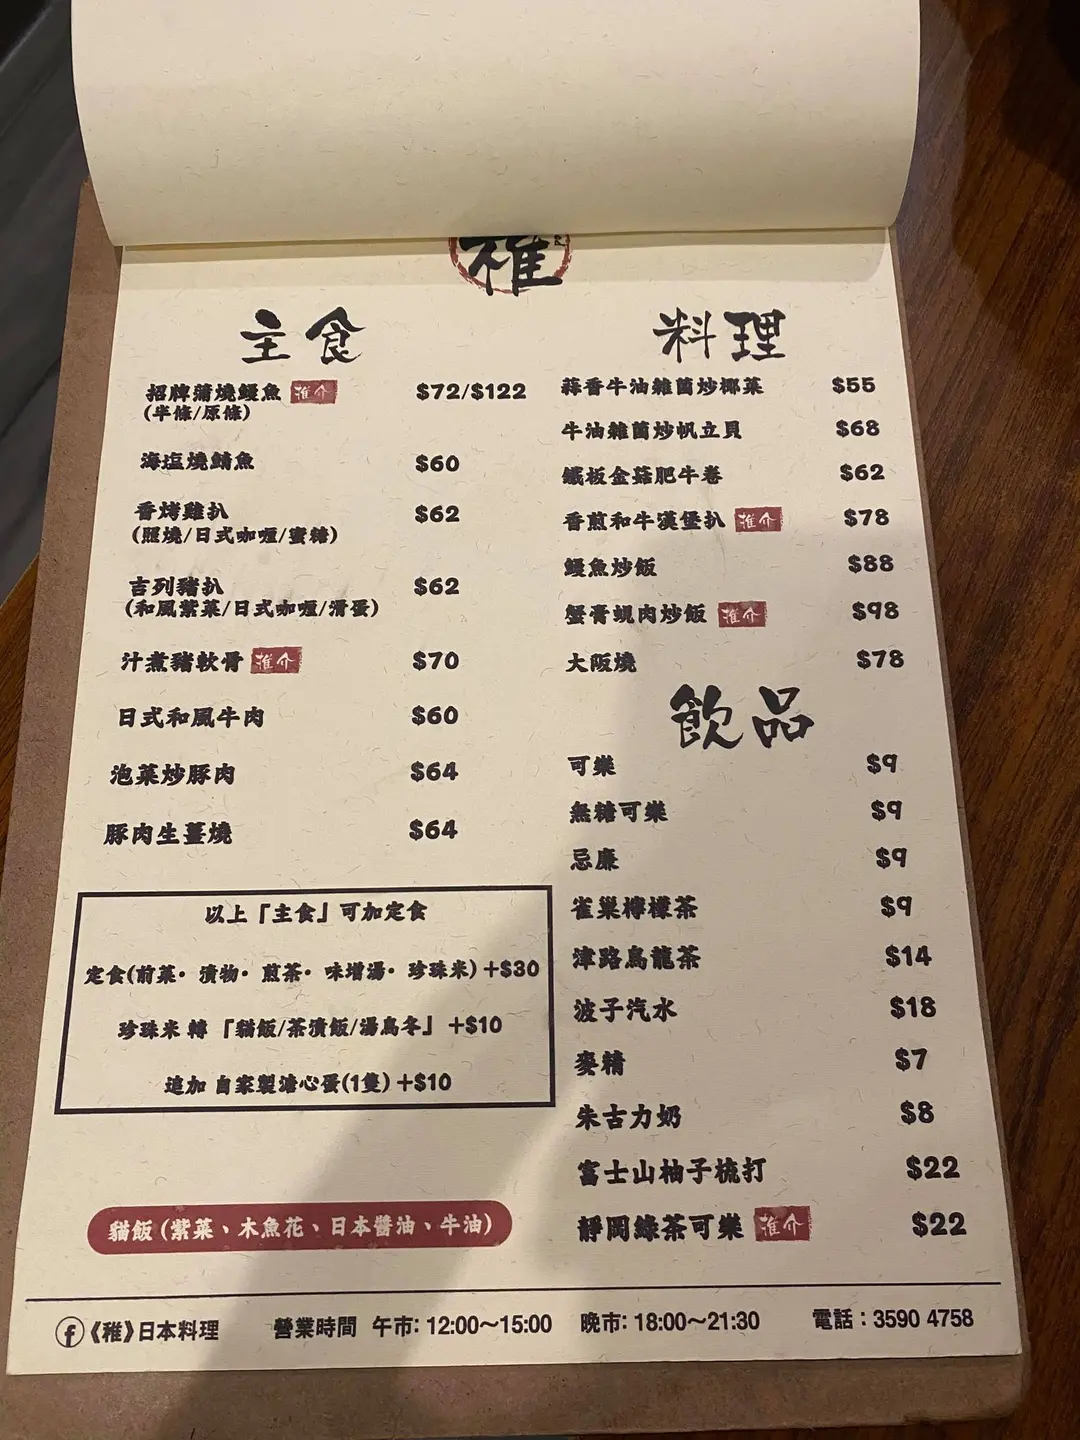 稚
主食
招牌蒲燒鰻魚 推介 $72/$122
(半條/原條)
海塩燒鯖魚 $60
香烤雞扒 $62
(照燒/日式咖喱/蜜糖)
吉列豬扒 $62
(和風紫菜/日式咖喱/滑蛋)
汁煮豬軟骨 推介 $70
日式和風牛肉 $60
泡菜炒豚肉 $64
豚肉生薑燒 $64
以上「主食」可加定食
定食(前菜・漬物・煎茶・味增湯・珍珠米) +$30
珍珠米 轉 「貓飯/茶漬飯/湯烏冬」 +$10
追加 自家製溏心蛋(1隻) +$10
貓飯 (紫菜、木魚花、日本醬油、牛油)
料理
蒜香牛油雜菌炒椰菜 $55
牛油雜菌炒帆立貝 $68
鐵板金菇肥牛卷 $62
香煎和牛漢堡扒 推介 $78
鰻魚炒飯 $88
蟹膏蜆肉炒飯 推介 $98
大阪燒 $78
飲品
可樂 $9
無糖可樂 $9
忌廉 $9
雀巢檸檬茶 $9
津路烏龍茶 $14
波子汽水 $18
麥精 $7
朱古力奶 $8
富士山柚子梳打 $22
靜岡綠茶可樂 推介 $22
《稚》日本料理 營業時間 午市: 12:00～15:00 晚市: 18:00～21:30 電話：3590 4758